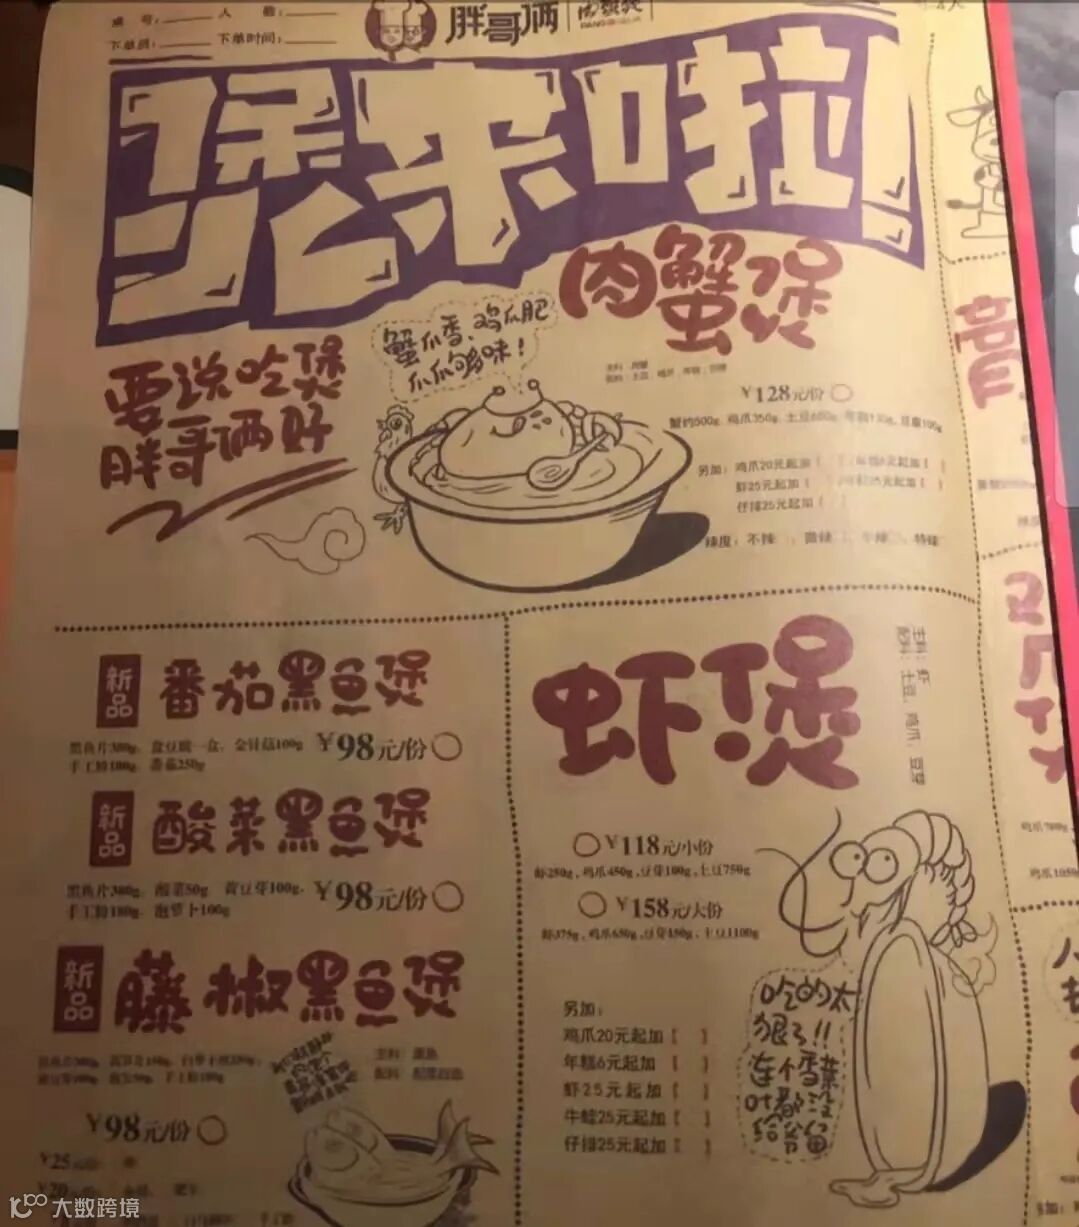 桌号：____ 人数：____
下单员：____ 下单时间：____
胖哥俩 肉蟹煲
煲来啦！
肉蟹煲
要说吃煲
胖哥俩好
蟹爪香、鸡爪肥
爪爪够味！
¥128元/份
蟹约500g，鸡爪350g，土豆600g，年糕130g，豆腐100g
另加：鸡爪20元起加【 】 年糕6元起加【 】
虾25元起加【 】
仔排25元起加【 】
辣度：不辣 、微辣 、中辣 、特辣
新品 番茄黑鱼煲
¥98元/份
黑鱼片300g，盒豆腐一盒，金针菇100g
手工粉180g，番茄250g
新品 酸菜黑鱼煲
黑鱼片300g，酸菜50g，黄豆芽100g，
手工粉180g，泡萝卜100g
¥98元/份
新品 藤椒黑鱼煲
¥98元/份
¥25
虾煲
主料：虾
配料：土豆，鸡爪，豆芽
¥118元/小份
虾250g，鸡爪450g，豆芽100g，土豆750g
¥158元/大份
虾375g，鸡爪650g，豆芽150g，土豆1100g
另加：
鸡爪20元起加【 】
年糕6元起加【 】
虾25元起加【 】
牛蛙25元起加【 】
仔排25元起加【 】
吃的太
狠了!!
连个香菜
叶都没
给爷留
大数跨境